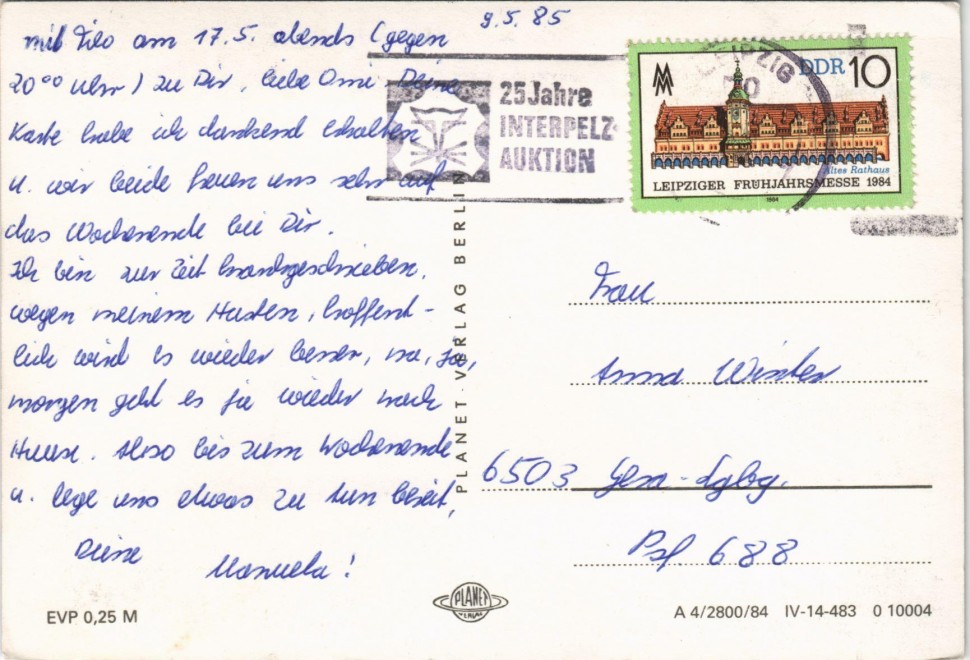 9.5.85
mit Filo am 17.5. abends (gegen
20⁰⁰ Uhr) zu Dir, liebe Omi. Deine
Karte habe ich dankend erhalten
u. wir beide freuen uns sehr auf
das Wochenende bei Dir.
Ich bin zur Zeit krankgeschrieben,
wegen meinem Husten, hoffent-
lich wird es wieder besser, na, ja,
morgen geht es ja wieder nach
Hause. Also bis zum Wochenende
u. lege uns etwas zu tun bereit,
Deine
Manuela!
EVP 0,25 M
PLANET-VERLAG BERLIN
25 Jahre
INTERPELZ-
AUKTION
LEIPZIG
DDR 10
Altes Rathaus
LEIPZIGER FRÜHJAHRSMESSE 1984
1984
Frau
Anna Winter
6503 Gera-Lgbg.
Psf 688
PLANET
VERLAG
A 4/2800/84 IV-14-483 0 10004